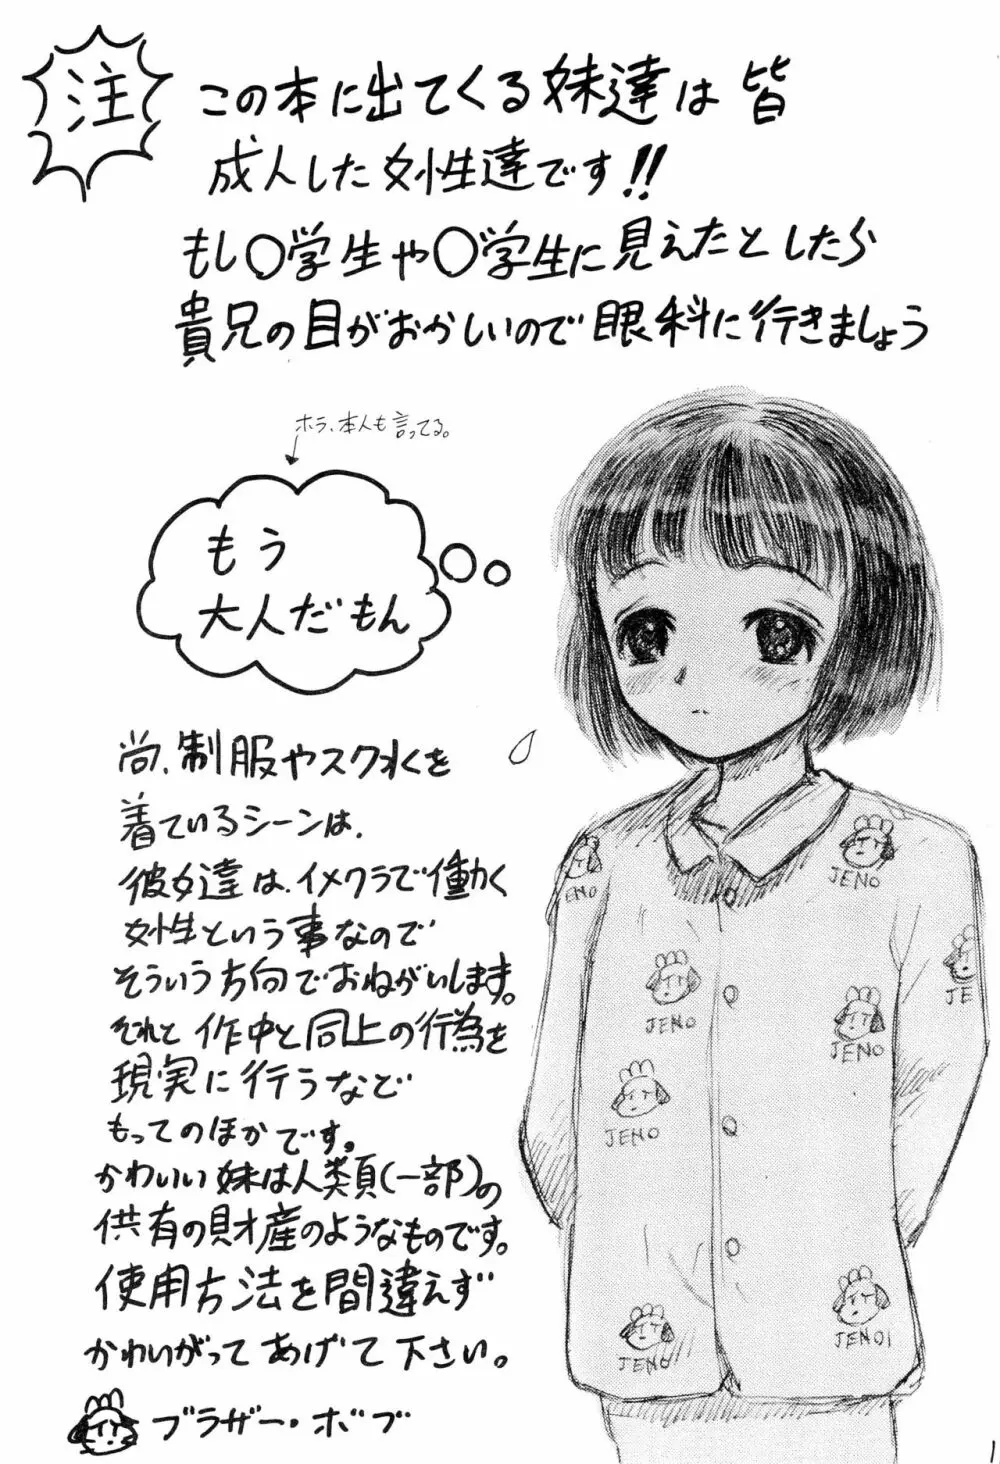 注
この本に出てくる妹達は皆
成人した女性達です!!
もし〇学生や〇学生に見えたとしたら
貴兄の目がおかしいので眼科に行きましょう
ホラ、本人も言ってる。
もう
大人だもん
尚、制服やスク水を
着ているシーンは、
彼女達は、イメクラで働く
女性という事なので
そういう方向でおねがいします。
それと作中と同上の行為を
現実に行うなど
もってのほかです。
かわいい妹は人類(一部)の
供有の財産のようなものです。
使用方法を間違えず
かわいがってあげて下さい。
ブラザー・ボブ
JENO
ENO
JENO
JE
JENO
JENO
JENO
JENO
JENOI
1